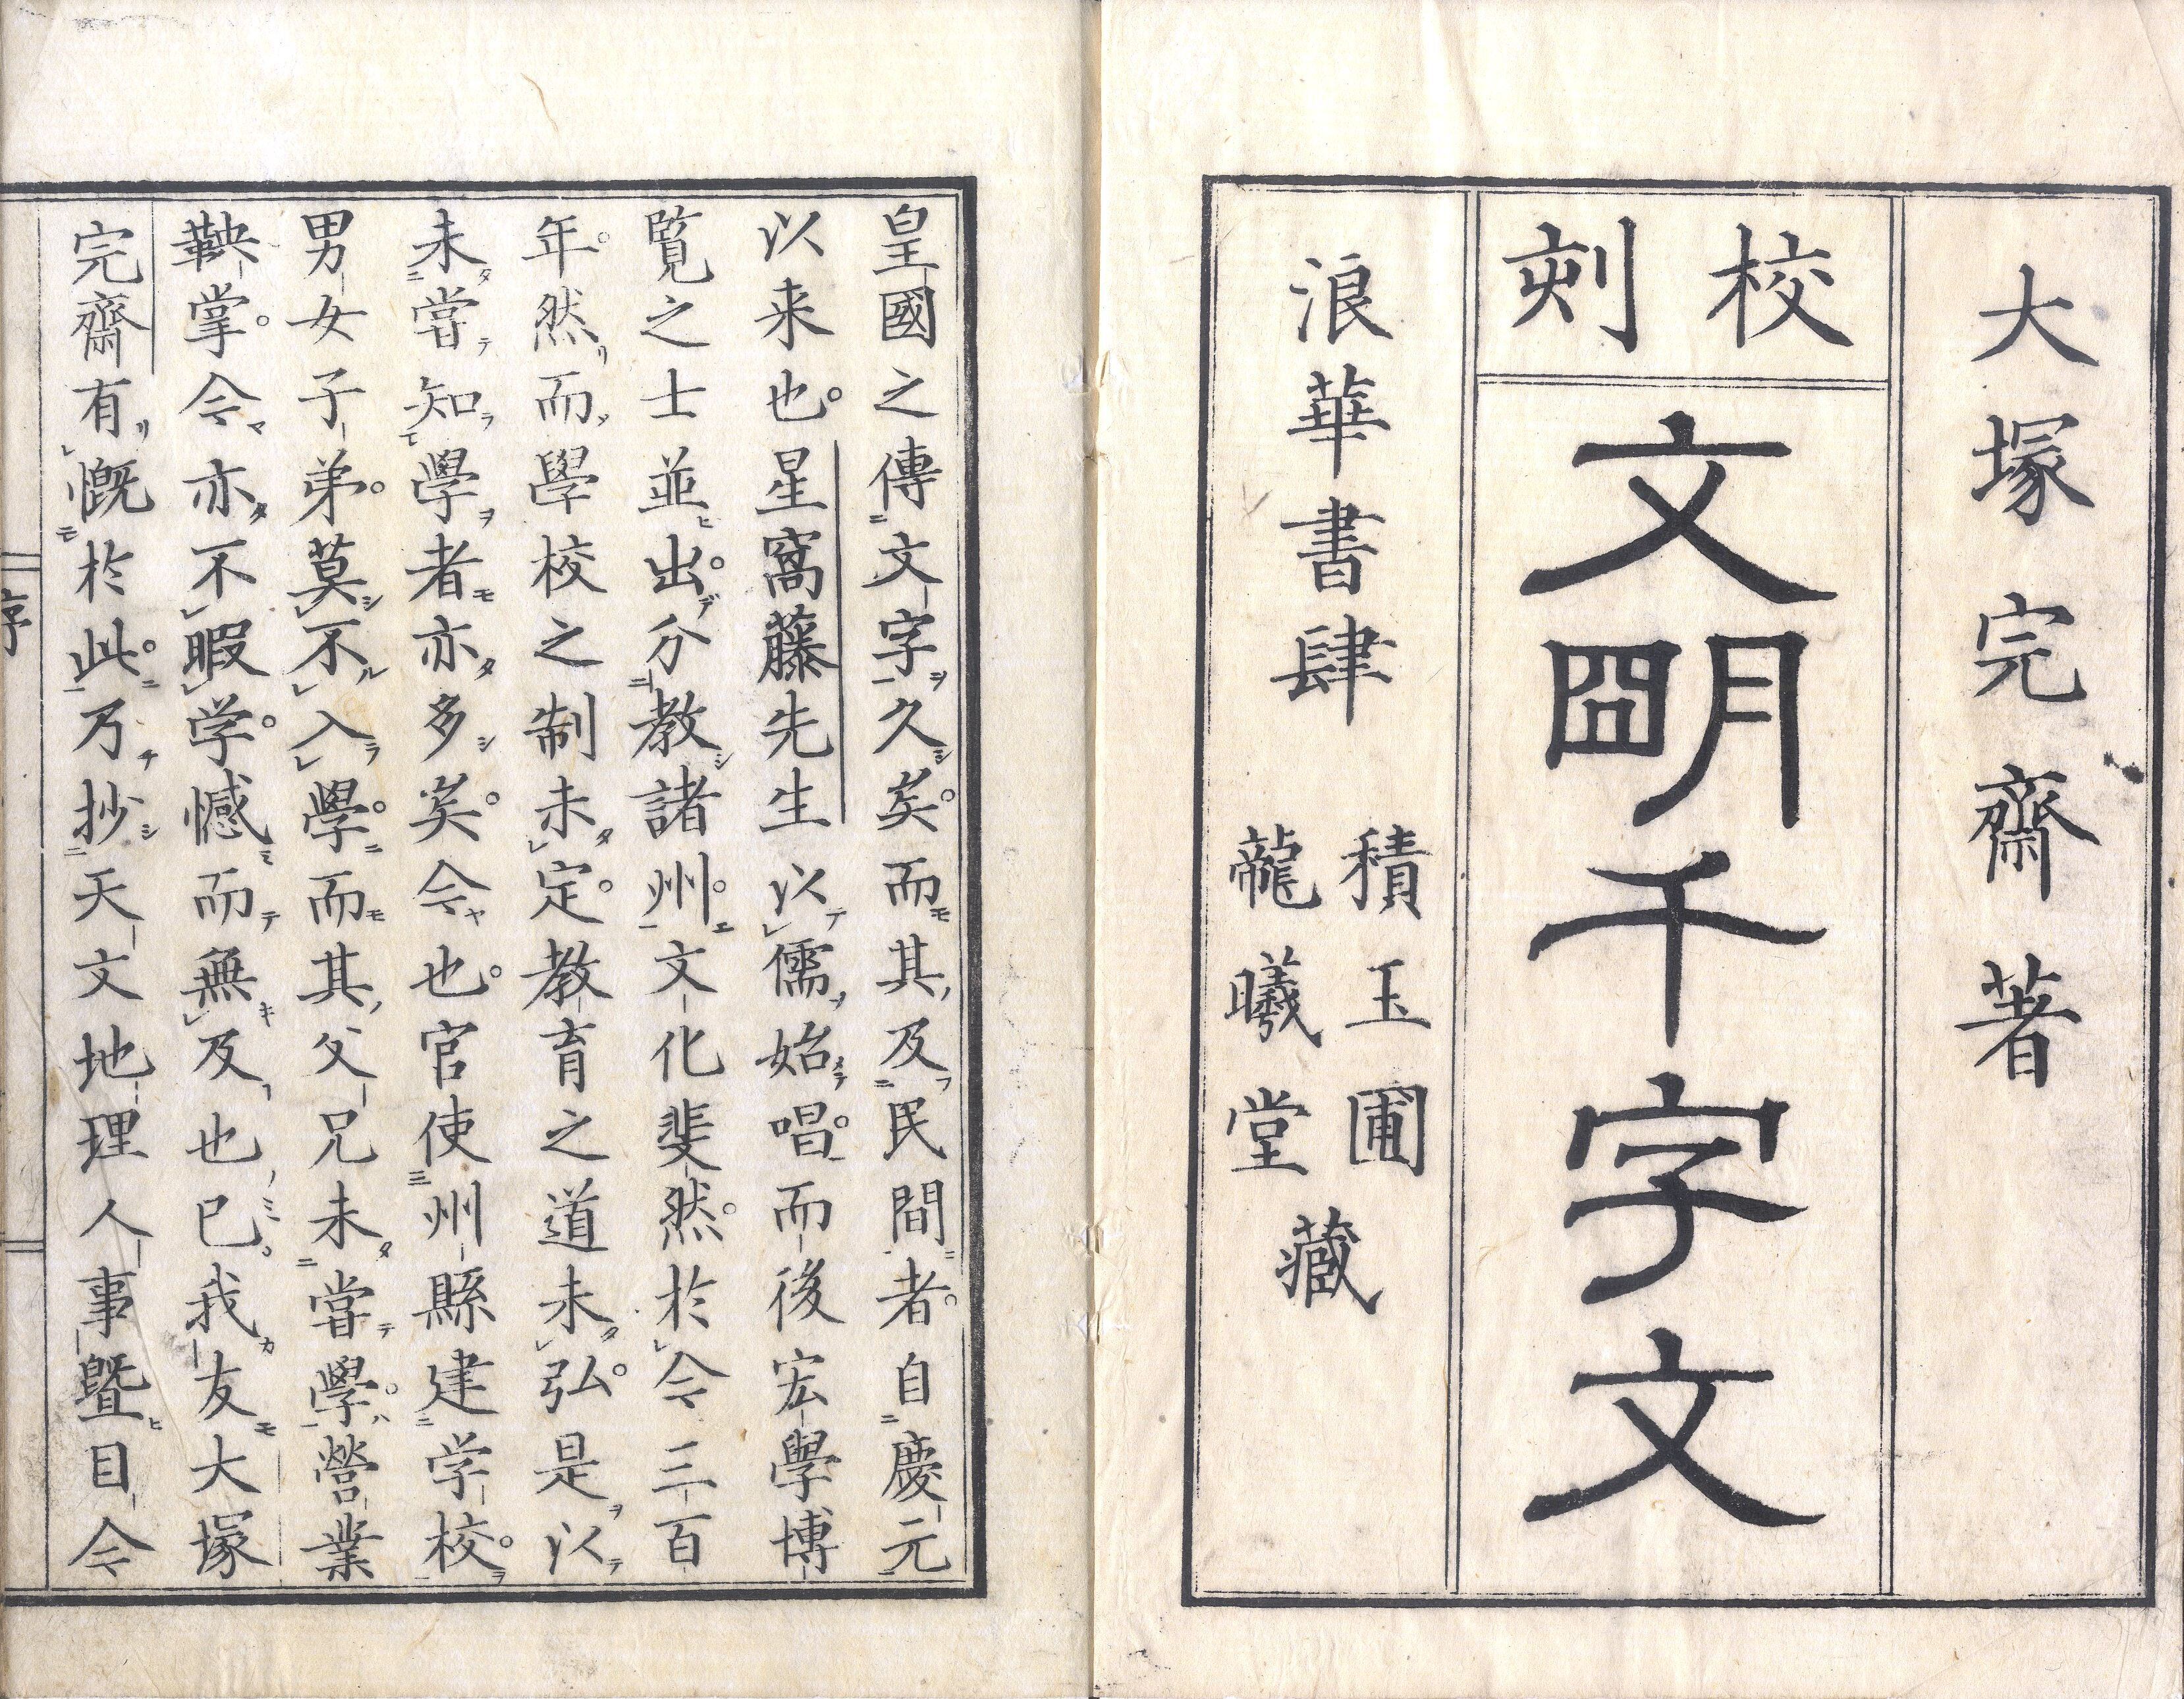 大塚完齋著
校刻
文朙千字文
浪華書肆
積玉圃
龍曦堂
藏
皇國之傳文字久矣而其及民間者自慶元
以来也星窩藤先生以儒始唱而後宏學博
覧之士並出分教諸州文化斐然於今三百
年然而學校之制未定教育之道未弘是以
未嘗知學者亦多矣今也官使州縣建学校
男女子弟莫不入學而其父兄未嘗學營業
鞅掌今亦不暇学憾而無及也已我友大塚
完齋有慨於此乃抄天文地理人事曁目今
序